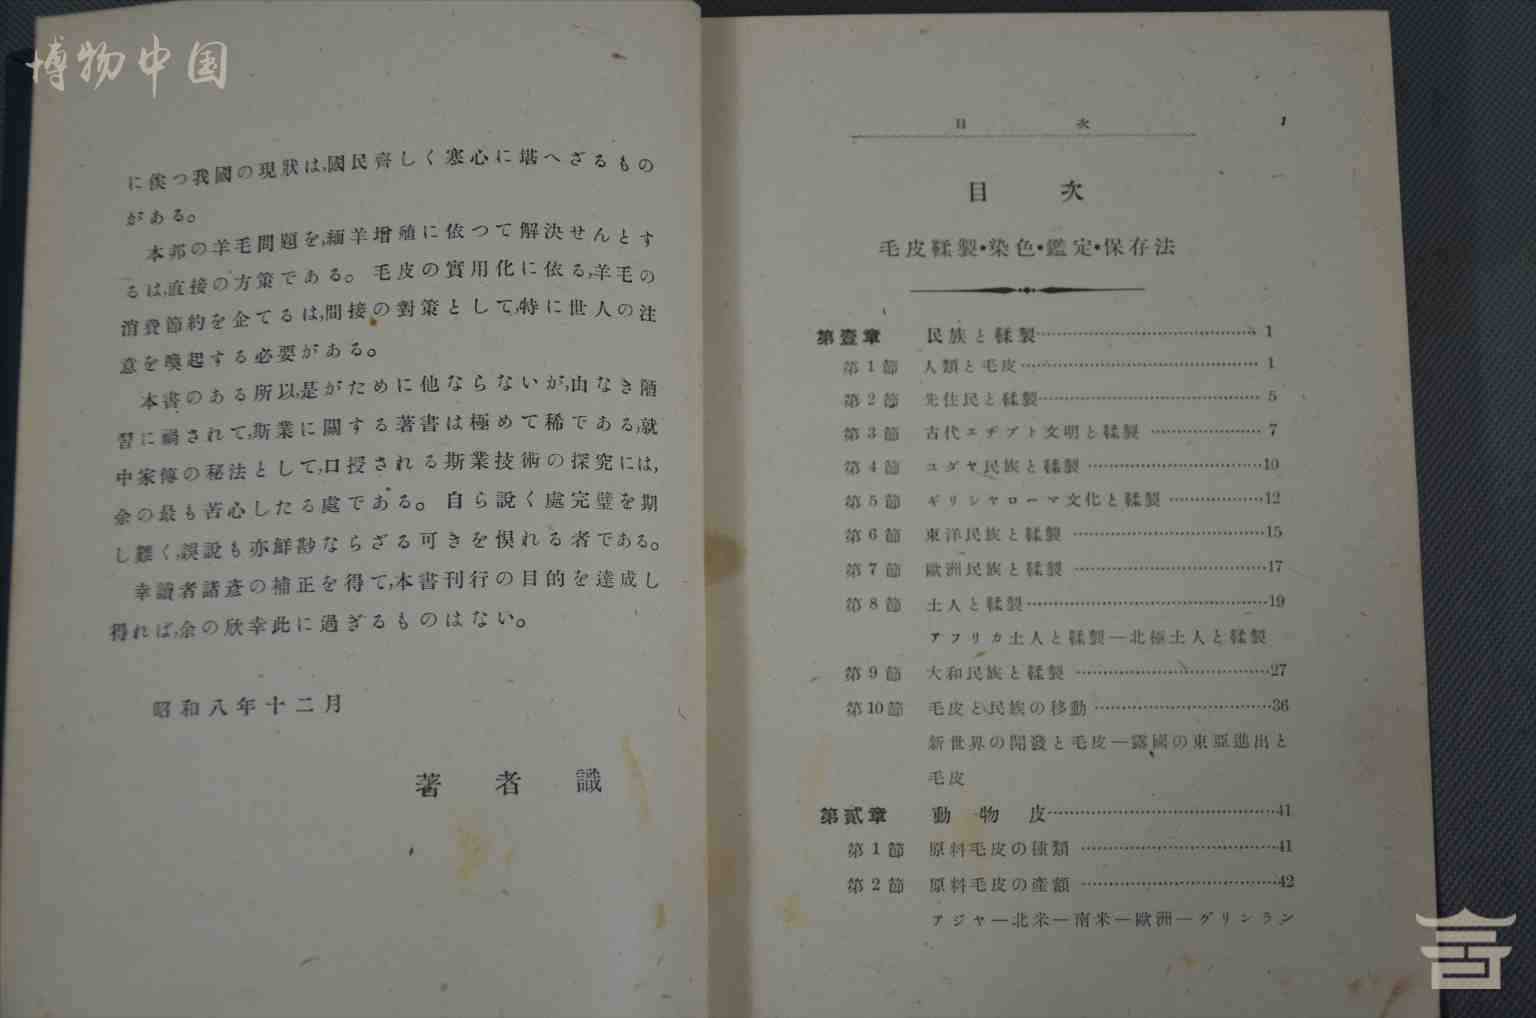 博物中国
に俟つ我國の現狀は,國民齊しく寒心に堪へざるもの
がある。
本邦の羊毛問題を,緬羊增殖に依つて解決せんとす
るは,直接の方策である。毛皮の實用化に依る,羊毛の
消費節約を企てるは,間接の對策として,特に世人の注
意を喚起する必要がある。
本書のある所以,是がために他ならないが,由なき陋
習に禍されて,斯業に關する著書は極めて稀である,就
中家傳の秘法として,口授される斯業技術の探究には,
余の最も苦心したる處である。自ら說く處完璧を期
し難く,誤說も亦鮮尠ならざる可きを惧れる者である。
幸讀者諸彥の補正を得て,本書刊行の目的を達成し
得れば,余の欣幸此に過ぎるものはない。
昭和八年十二月
著者識
目次 1
目次
毛皮鞣製・染色・鑑定・保存法
第壹章 民族と鞣製……1
第1節 人類と毛皮……1
第2節 先住民と鞣製……5
第3節 古代エヂプト文明と鞣製……7
第4節 ユダヤ民族と鞣製……10
第5節 ギリシヤローマ文化と鞣製……12
第6節 東洋民族と鞣製……15
第7節 歐洲民族と鞣製……17
第8節 土人と鞣製……19
アフリカ土人と鞣製—北極土人と鞣製
第9節 大和民族と鞣製……27
第10節 毛皮と民族の移動……36
新世界の開發と毛皮—露國の東亞進出と
毛皮
第貳章 動物皮……41
第1節 原料毛皮の種類……41
第2節 原料毛皮の產額……42
アジヤ—北米—南米—歐洲—グリンラン